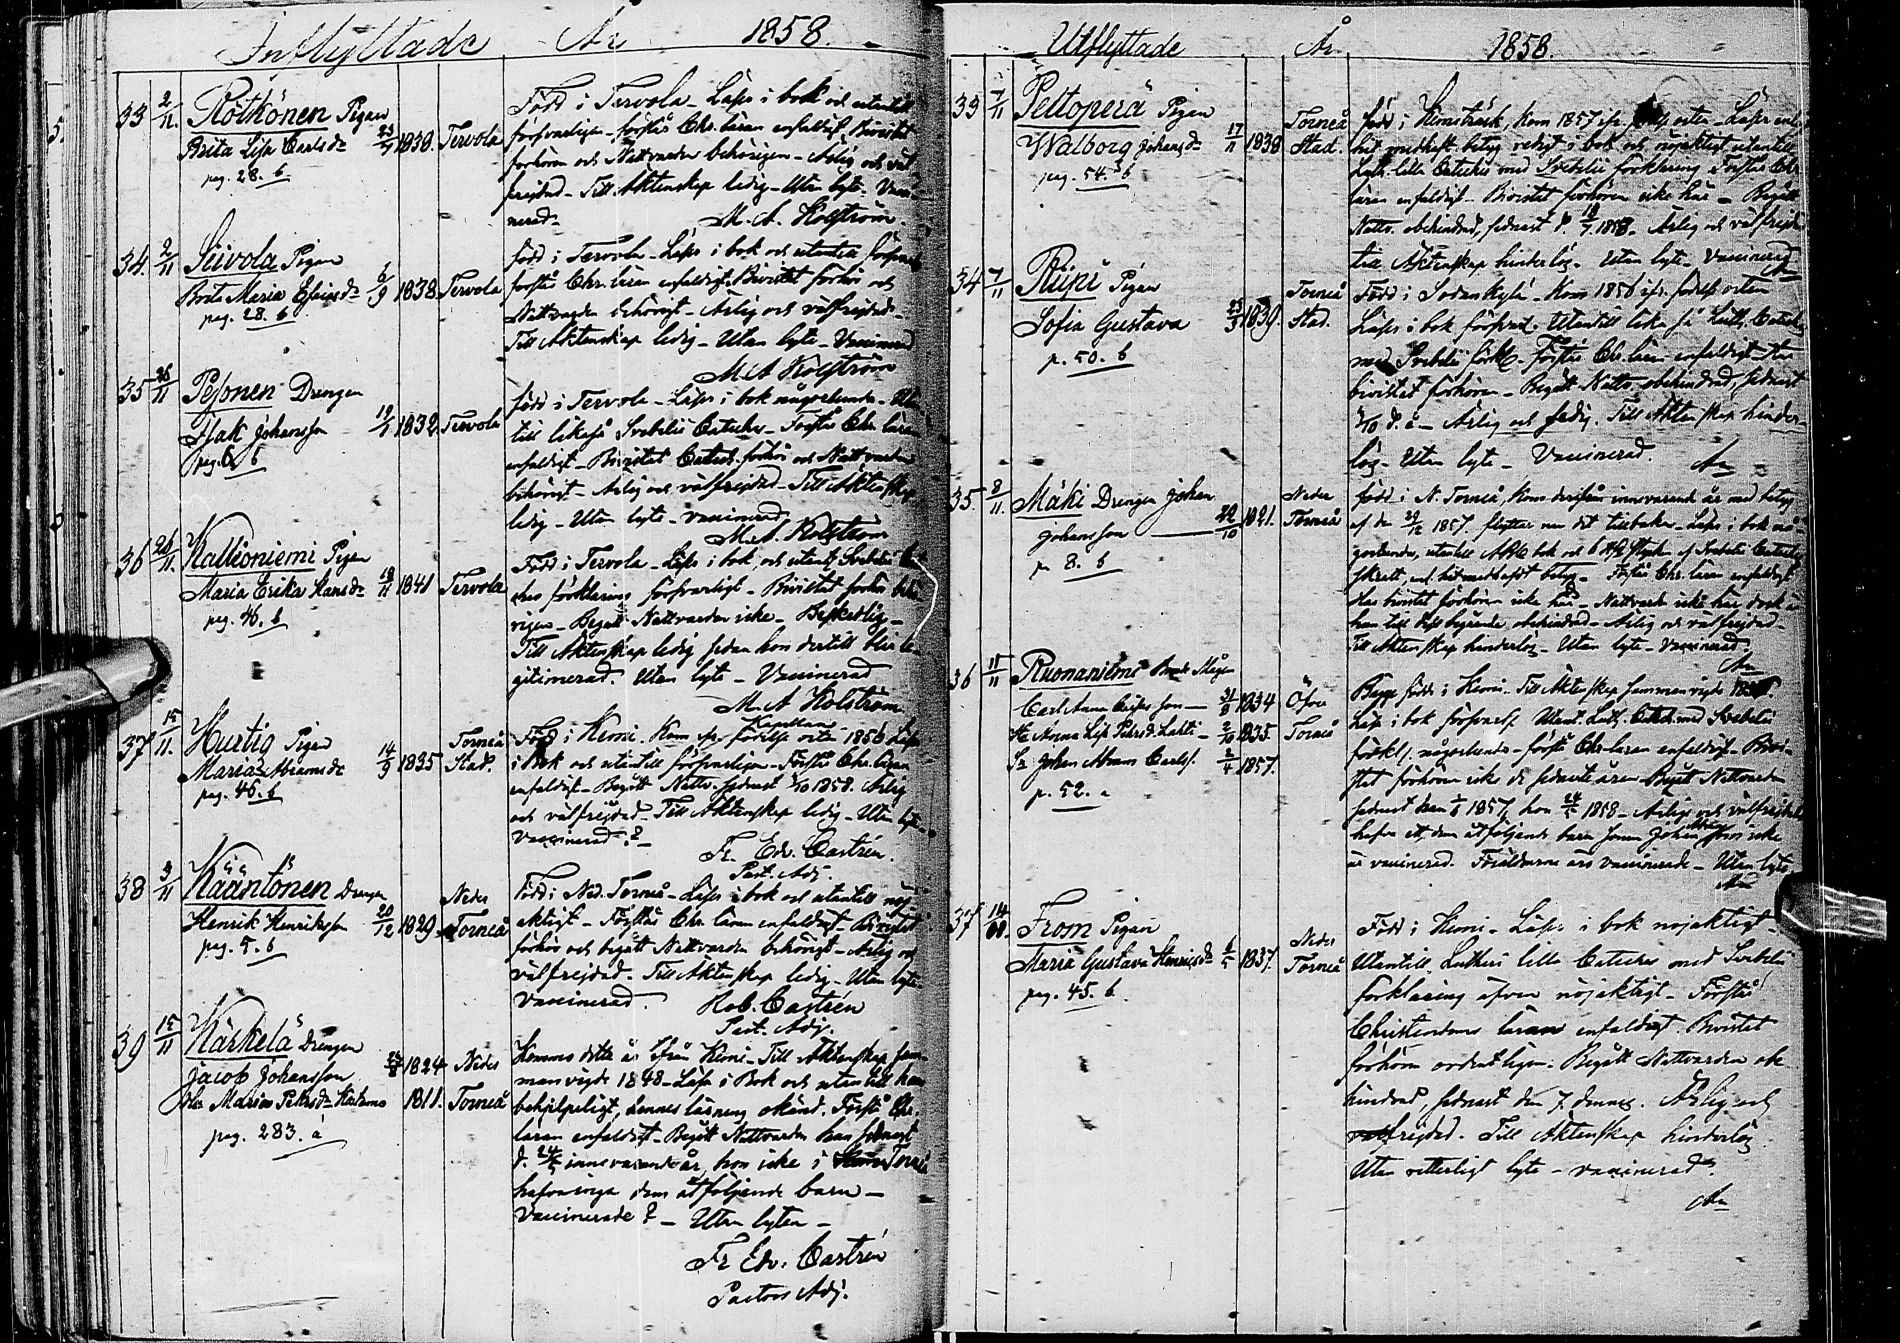 Inflyttade År 1858.
33 2/11. Rötkönen Pigan
Brita Lisa Carlsdr 1839. Tervola
pag. 28. b
Född i Tervola - Läser i bok och utantill
försvarligen - förstår Chr. läran enfaldigt. Bivistat
förhören och Nattvarden behörigen - Ärlig och väl
frejdad - Till Äktenskap ledig - Utan lyte - Vacci-
nerad -
M. A. Holström.
34. 2/11 Siivola Pigan
Brita Maria 6/9 1838. Tervola
pag. 28. b
född i Tervola - Läser i bok och utantill
förstår Chr. läran enfaldigt. Bivistat förhör och
Nattvarden behörigt - Ärlig och välfrejdad -
Till Äktenskap ledig - Utan lyte - Vaccinerad
M A Holström
35 26/11 Pesonen Drengen
Isak Johansson 1832. Tervola
pag. 6. b
född i Tervola - Läser i bok någorlunda - Utan
till likaså Svebelii Cateches - Förstår Chr. läran
enfaldigt - Bivistat Catech. förhör och Nattvarden
behörigt - Ärlig och välfrejdad - Till Äktenskap
ledig - Utan lyte - vaccinerad
M. A. Holström
36 26/11. Kallioniemi Pigan
Maria Erika Hansdr 1841 Tervola
pag. 46. b
Född i Tervola - Läser i bok, och utantill Svebelii
förklaring försvarligt - Bivistat förhör behö
rigen - Begått Nattvarden icke - Beskedlig -
Till Äktenskap ledig sedan hon dertill blir le
gitimerad. Utan lyte - Vaccinerad
M. A. Holström
Kapellan
37 15/11. Hurtig Pigan
Maria Abramsdr 14/9 1835 Torneå Stad.
pag. 46. b
Född i Kemi - Kom fr. födelse orten 1856 Läser
i bok och utantill försvarligen - Förstår Chr. läran
enfaldigt - Begått Nattv. sednast 1858. Ärlig
och välfrejdad - Till Äktenskap ledig - Utan lyte -
Vaccinerad? -
Fr. Edv. Castrén.
Past. Adj.
38 9/11 Kääntönen Drengen
Henrik Henriksson 20/12 1829 Neder Torneå
pag. 5. b
född i Ned. Torneå - Läser i bok och utantill nöj-
aktigt - Förstår Chr. läran enfaldigt - Bivistat
förhör och begått Nattvarden behörigt - Ärlig och
välfrejdad - Till Äktenskap ledig - Utan lyte
Vaccinerad
Rob. Castrén
Past. Adj.
39 15/11 Kärkelä Drengen
Jacob Johansson 1824 Neder
Maria Petersdr 1811. Torneå
pag. 283. a
Kommo detta år ifrån Kemi - Till Äktenskap sam-
manvigde 1848 - Läser i Bok och utantill han
behjelpeligt, hennes läsning okänd. Förstå Chr.
läran enfaldigt - Begått Nattvarden han sednast
d. 24/ innevarande år, hon icke i Torneå
hafva inga dem åtföljande barn -
Vaccinerade? - Utan lyten -
Fr Edv. Castrén
Pastors Adj.
Utflyttade År 1858.
33 7/11 Peltoperä Pigan
Walborg Johansdr 17/11 1838 Torneå Stad.
pag. 54. b
född i Kemiträsk, kom 1857 ifr. födelse orten - Läser enl.
hit medhaft betyg redigt i bok och nöjaktigt utantill
Luth. lilla Cateches med Svebelii förklaring. Förstår Chr.
läran enfaldigt - Bivistat förhören icke här - Begått
Nattv. obehindrad, sednast d. 1858. Ärlig och välfrejdad
till Äktenskap hinderlös - Utan lyte - Vaccinerad
34 7/11 Riipi Pigan
Sofia Gustava 1839. Torneå Stad.
p. 50. b
Född i Sodankylä - Kom 1856 ifr. födelse orten
Läser i bok försvarl. Utantill lika så Luth. Catech.
med Svebelii förkl. - Förstår Chr. läran enfaldigt -
bivistat förhören - Begått Nattv. obehindrad, sednast
/10 d. å - Ärlig och ledig. Till Äktenskap hinder-
lös - Utan lyte - Vaccinerad.
35. 8/11. Mäki Drengen Johan
Johansson 1821. Neder Torneå
p 8. b
född i N. Torneå, kom derifrån innevarande år med betyg
af den 29/12 1857 flyttar nu dit tillbaka - Läser i bok nå-
gorlunda, utantill ABC bok och 6 stycken af Svebelii Cateches
skrift, enl. hitmedhaft betyg - Förstår Chr. läran enfaldigt
Har bivistat förhören icke här - Nattvarden icke här dock är
han till dess begående obehindrad - Ärlig och välfrejdad -
Till Äktenskap hinderlös - Utan lyte - Vaccinerad.
36 15/11 Ruonaniemi Bonde Mågen
Carl 1834 Öfver
H: Anna Lisa Petersdr Lahti - 2/10 1835. Torneå
S: Johan Abram Carlss. 2/4 1857.
p. 52. a
Begge födde i Kemi. Till Äktenskap sammanvigde
Läser i bok försvarl. Utant. Luth. Catech. med Svebelii
förkl., någorlunda - förstå Chr. läran enfaldigt - Bivi-
stat förhören icke de sednaste åren - Begått Nattvarden
sednast han 1857, hon 1858 - Ärlige och välfrejdade
hafva ett dem åtföljande barn Johan som icke
är vaccinerad. Föräldrarne äro vaccinerade - Utan lyte
37 14/11 From Pigan
Maria Gustava Henriksdr 1837. Neder Torneå
pag. 45. b
Född i Kemi - Läser i bok nöjaktigt -
Utantill Lutheri lilla Cateches med Svebelii
förklaring äfven nöjaktigt - Förstår
Christendoms läran enfaldigt Bivistat
förhören ordentligen. Begått Nattvarden obe
hindrad, sednast den 7 dennes. Ärlig och
välfrejdad. Till Äktenskap hinderlös
Utan vetterligt lyte - vaccinerad